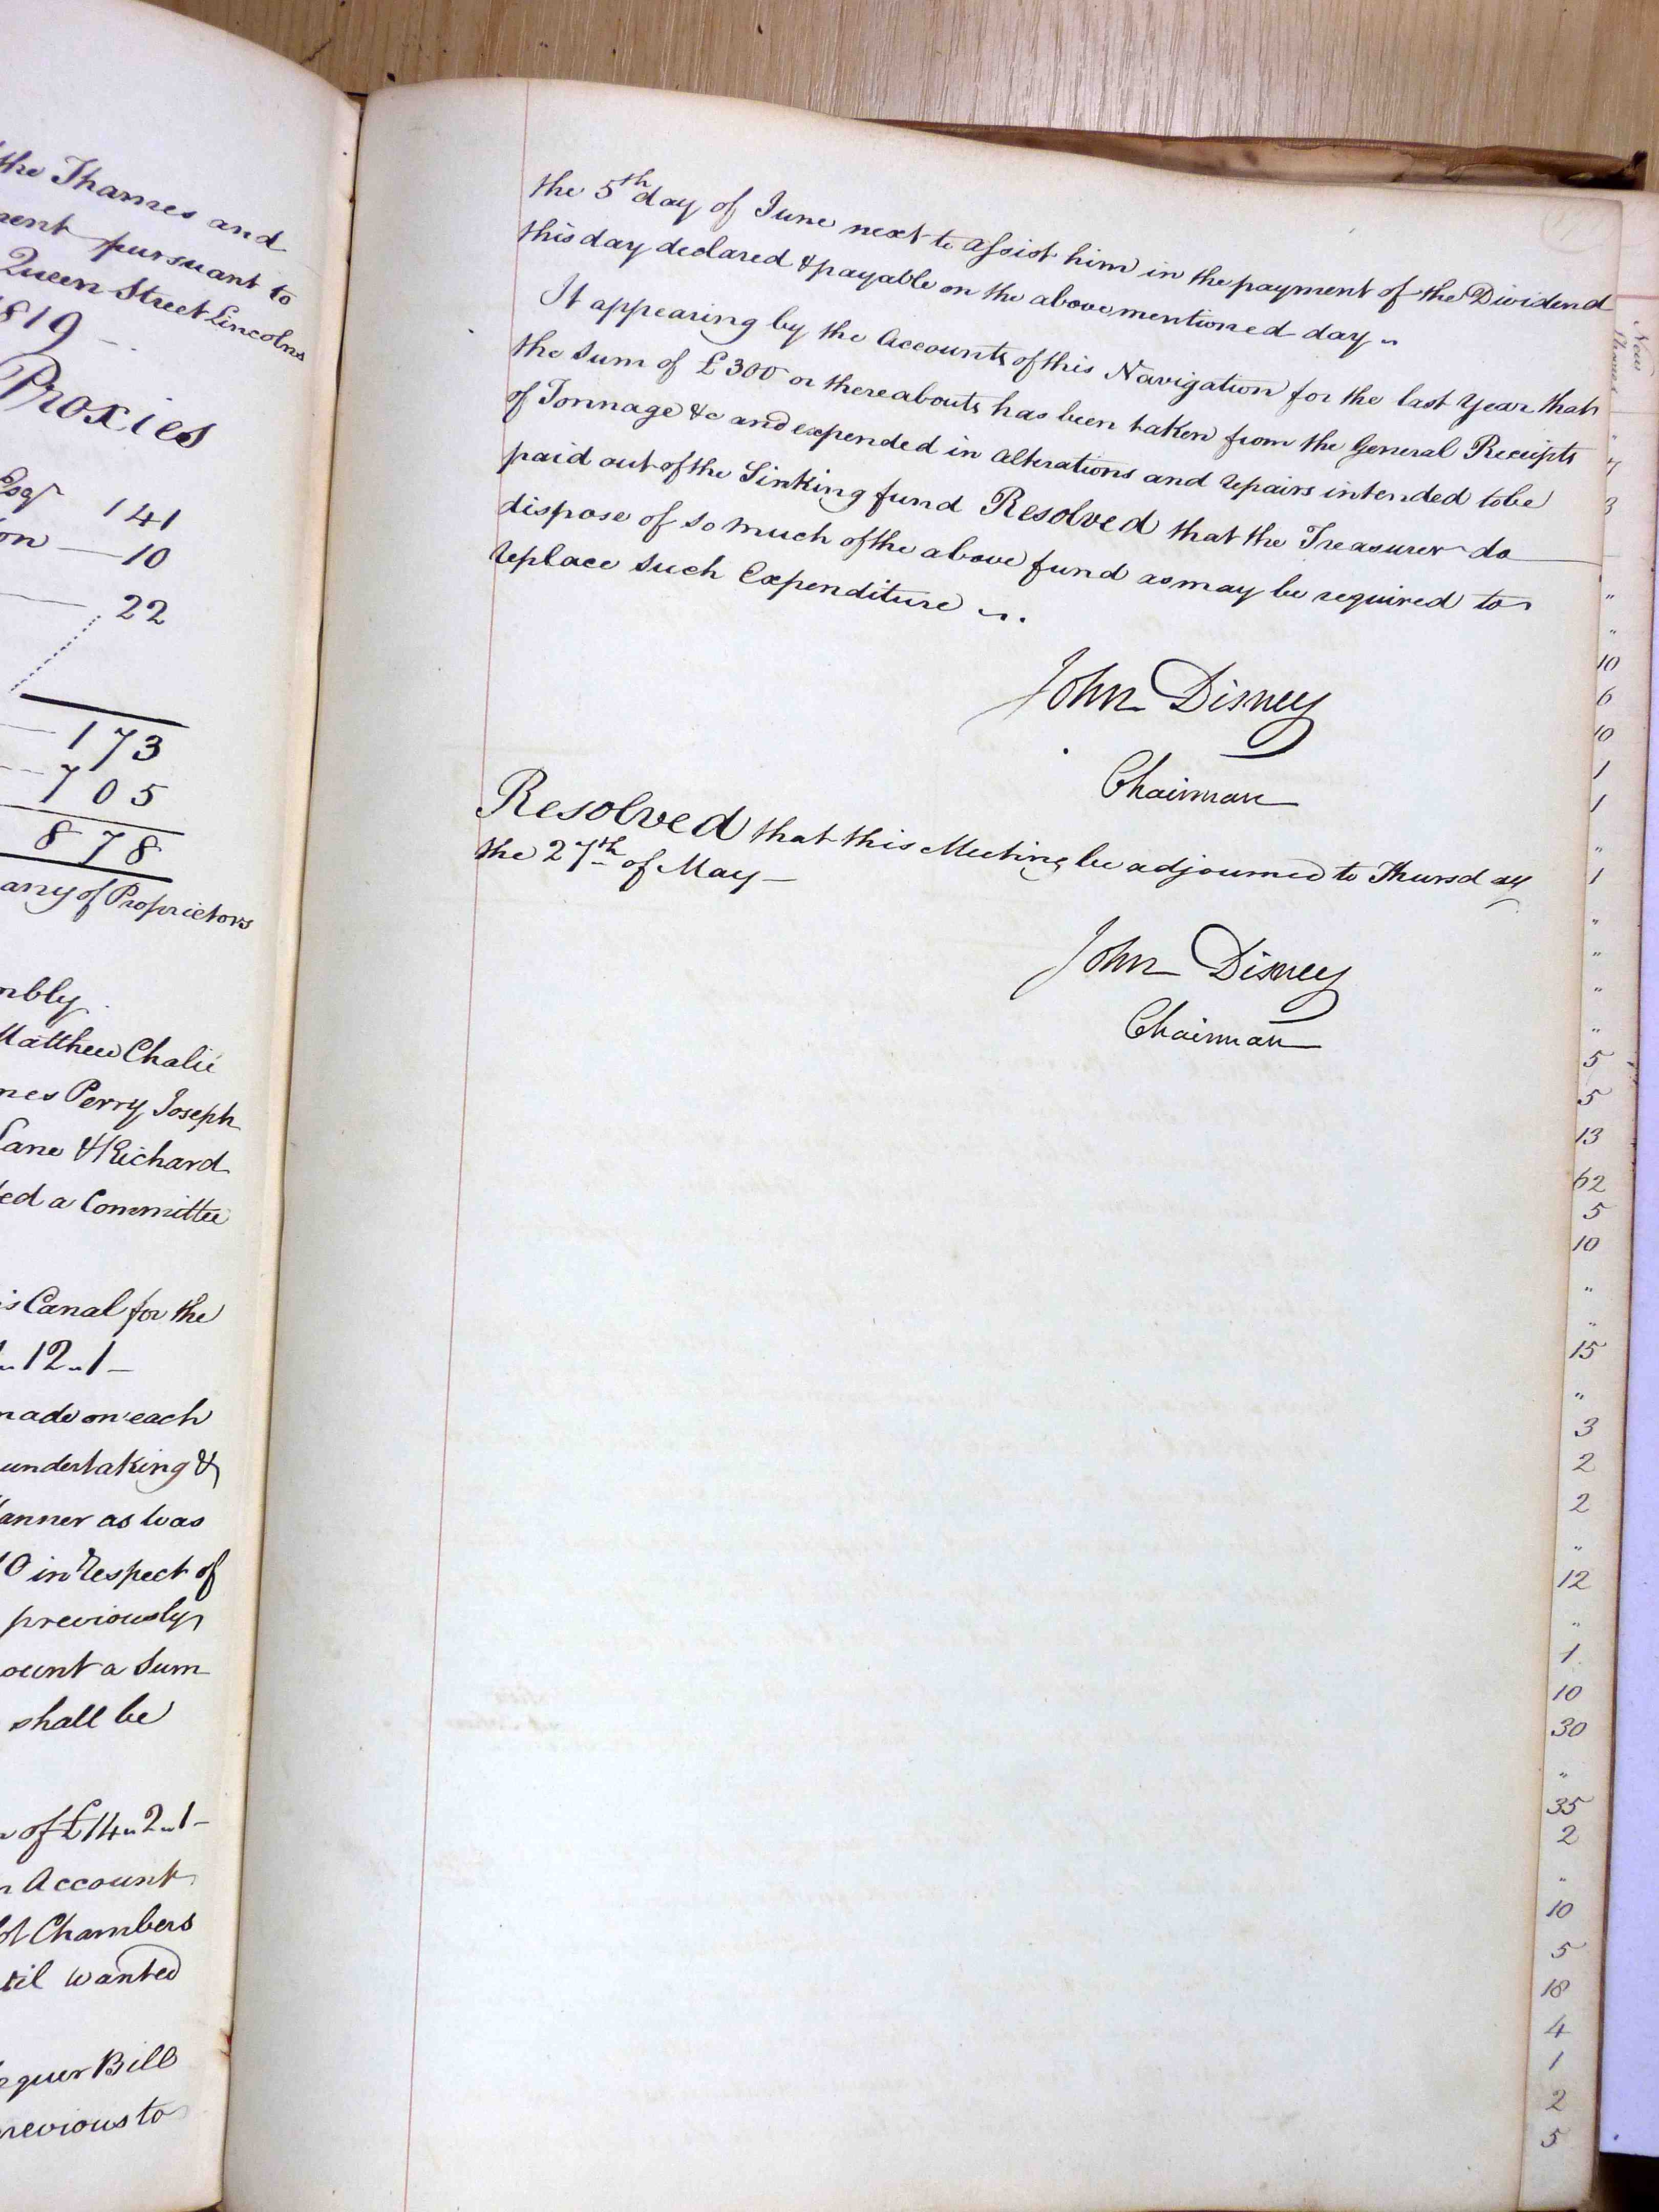 the Thames and
ment pursuant to
Queen Street Lincolns
1819
Proxies
Esqr 141
on — 10
22
173
705
878
any of Proprietors
mbly
Matthew Chalié
mes Perry Joseph
Lane & Richard
ted a Committee
is Canal for the
12 " 1 –
made on each
undertaking &
Manner as was
10 in respect of
previously
ount a Sum
shall be
of £14 " 2 " 1 –
n Account
ot Chambers
til wanted
equer Bill
previous to
the 5th day of June next to assist him in the payment of the Dividend
this day declared & payable on the above mentioned day "
It appearing by the Accounts of this Navigation for the last Year that
the Sum of £300 or thereabouts has been taken from the General Receipts
of Tonnage &c and expended in Alterations and repairs intended to be
paid out of the Sinking fund Resolved that the Treasurer do
dispose of so much of the above fund as may be required to
replace such Expenditure
John Disney
Chairman
Resolved that this Meeting be adjourned to Thursday
the 27th of May –
John Disney
Chairman
New
Shares
"
7
3
"
"
10
6
10
1
1
"
1
"
"
"
"
5
5
13
62
5
10
"
"
15
"
3
2
2
"
12
"
1
10
30
"
35
2
"
10
5
18
4
1
2
5